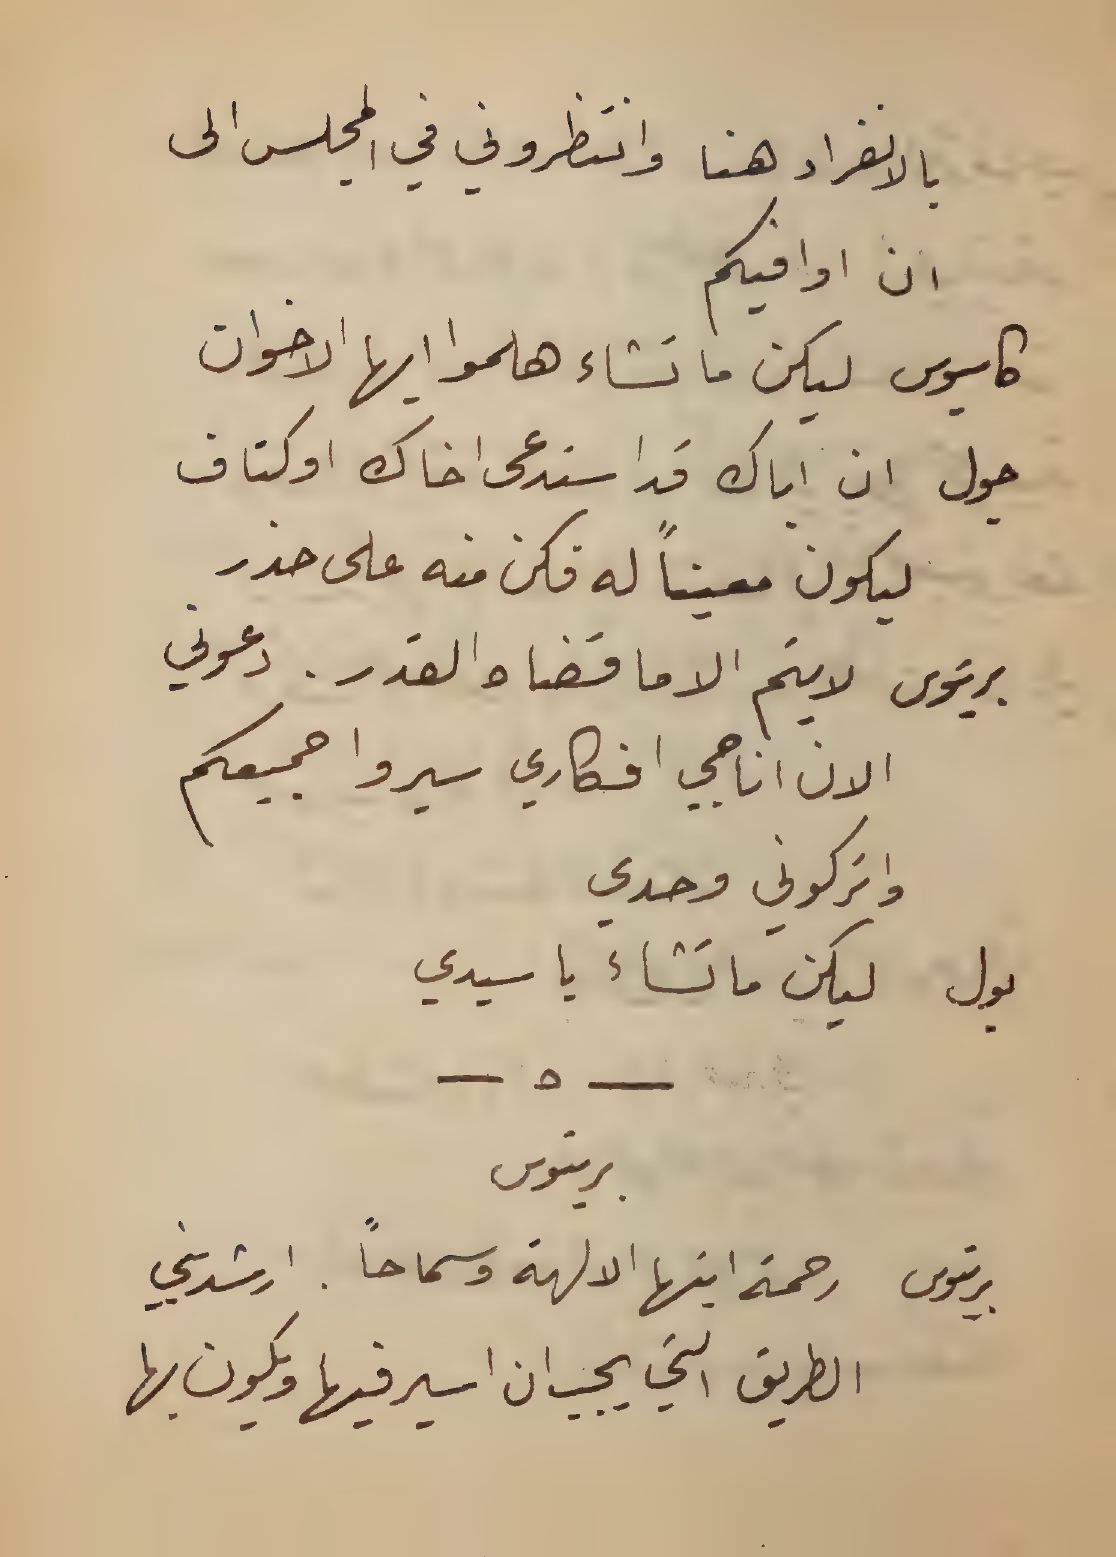 بالانفراد هنا وانتظروني في المجلس الى
ان اوافيكم
كاسيوس ليكن ما تشاء هلموا ايها الاخوان
جول ان اباك قد استدعى اخاك اوكتاف
ليكون معيناً له فكن منه على حذر
بريتوس لا يتم الا ما قضاه القدر . دعوني
الان اناجي افكاري سيروا جميعكم
واتركوني وحدي
بول ليكن ما تشاء يا سيدي
— ه —
بريتوس
بريتوس رحمة ايتها الالهة وسماحاً . ارشديني
الطريق التي يجب ان اسير فيها ويكون بها